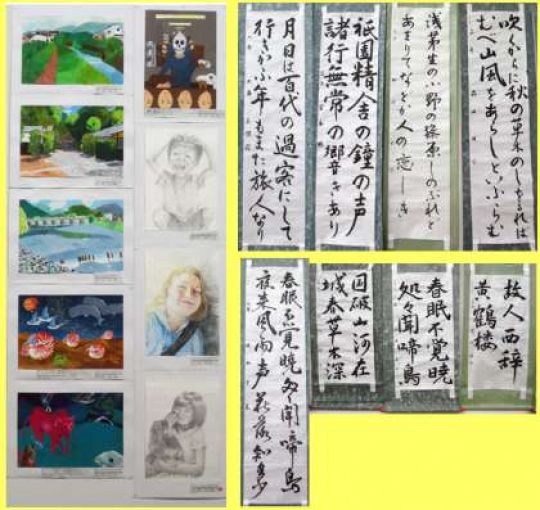 吹くからに秋の草木のしをるれは
むべ山風をあらしといふらむ
浅茅生の小野の篠原しのふれと
あまりてなどか人の恋しき
祇園精舎の鐘の声
諸行無常の響きあり
月日は百代の過客にして
行きかふ年もまた旅人なり
故人西辞
黄鶴楼
春眠不覚暁
処々聞啼鳥
国破山河在
城春草木深
春眠不覚暁処々聞啼鳥
夜来風雨声花落知多少